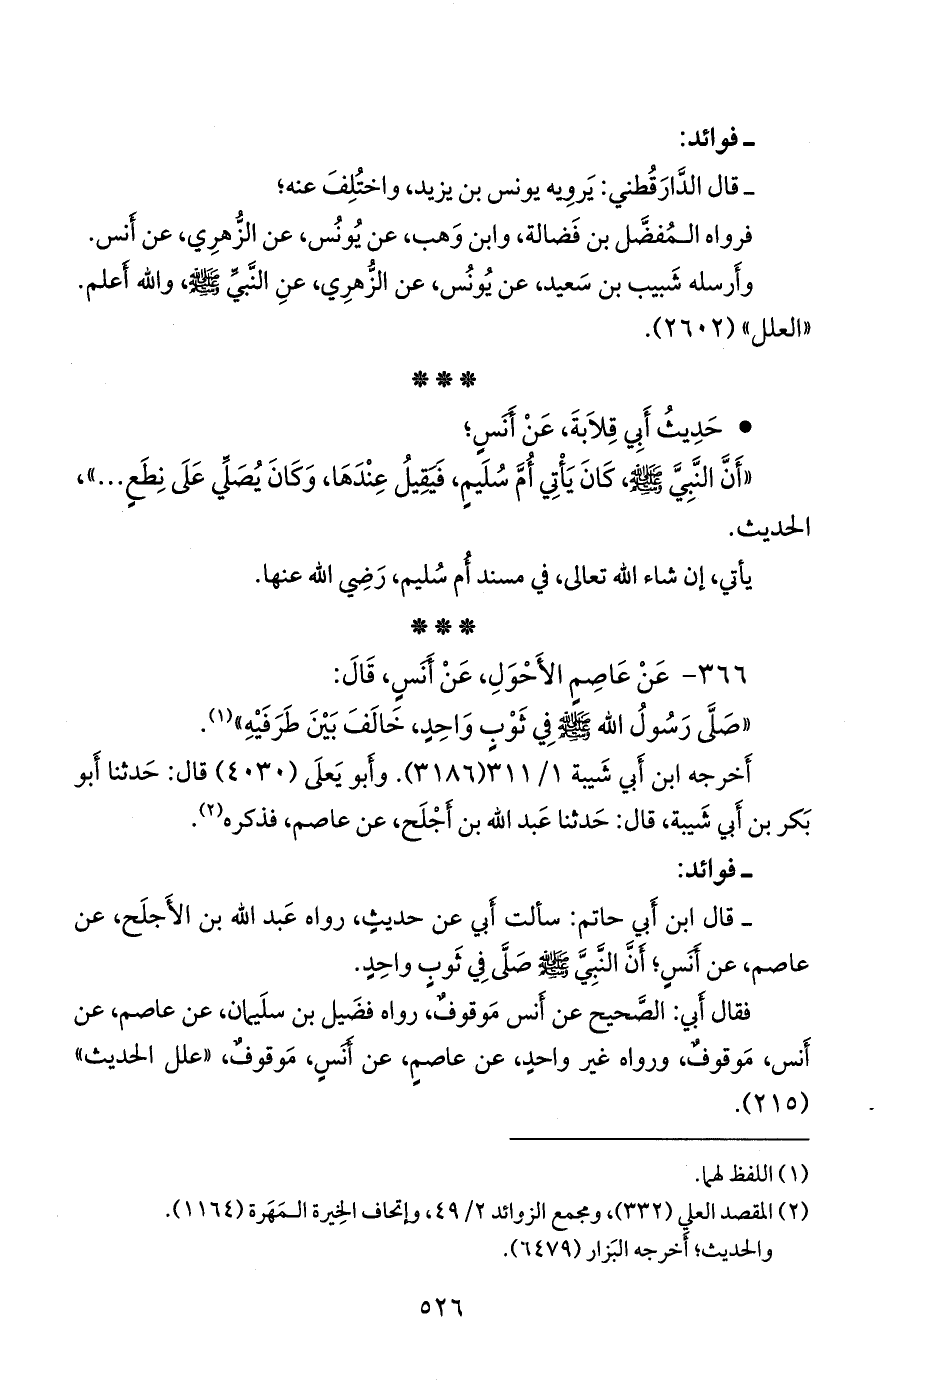 ـ فوائد:
ـ قال الدَّارَقُطني: يَرويه يونس بن يزيد، واختُلِفَ عنه؛
فرواه الـمُفضَّل بن فَضالة، وابن وَهب، عن يُونُس، عن الزُّهري، عن أَنس.
وأَرسله شَبيب بن سَعيد، عن يُونُس، عن الزُّهري، عنِ النَّبيِّ ﷺ، والله أَعلم.
«العلل» (٢٦٠٢).
* * *
• حَدِيثُ أَبي قِلاَبَةَ، عَنْ أَنَسٍ؛
«أَنَّ النَّبِيَّ ﷺ، كَانَ يَأْتِي أُمَّ سُلَيمٍ، فَيَقِيلُ عِنْدَهَا، وَكَانَ يُصَلِّي عَلَى نِطَعٍ...»،
الحديث.
يأتي، إن شاء الله تعالى، في مسند أُم سُليم، رَضِي الله عنها.
* * *
٣٦٦- عَنْ عَاصِمٍ الأَحْوَلِ، عَنْ أَنَسٍ، قَالَ:
«صَلَّى رَسُولُ الله ﷺ فِي ثَوْبٍ وَاحِدٍ، خَالَفَ بَيْنَ طَرَفَيْهِ»(١).
أَخرجه ابن أَبي شَيبة ١/ ٣١١(٣١٨٦). وأَبو يَعلَى (٤٠٣٠) قال: حَدثنا أَبو
بَكر بن أَبي شَيبة، قال: حَدثنا عَبد الله بن أَجْلَح، عن عاصم، فذكره(٢).
ـ فوائد:
ـ قال ابن أَبي حاتم: سأَلت أَبي عن حديثٍ، رواه عَبد الله بن الأَجلَح، عن
عاصم، عن أَنَسٍ؛ أَنَّ النَّبِيَّ ﷺ صَلَّى فِي ثَوبٍ واحِدٍ.
فقال أَبي: الصَّحيح عن أَنس مَوقوفٌ، رواه فضَيل بن سلَيمان، عن عاصم، عن
أَنس، مَوقوفٌ، ورواه غير واحدٍ، عن عاصمٍ، عن أَنَسٍ، مَوقوفٌ، «علل الحديث»
(٢١٥).
(١) اللفظ لهما.
(٢) المقصد العلي (٣٣٢)، ومجمع الزوائد ٢/ ٤٩، وإتحاف الخِيرة الـمَهَرة (١١٦٤).
والحديث؛ أَخرجه البَزار (٦٤٧٩).
٥٢٦